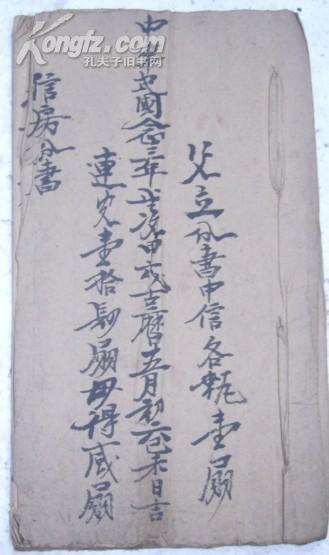 父立分書中信各執壹扇
中華民國念三年歲次甲戌古曆五月初六己未日吉
連完壹拾扇毋得咸扇
信房分書
Kongfz.com
孔夫子旧书网